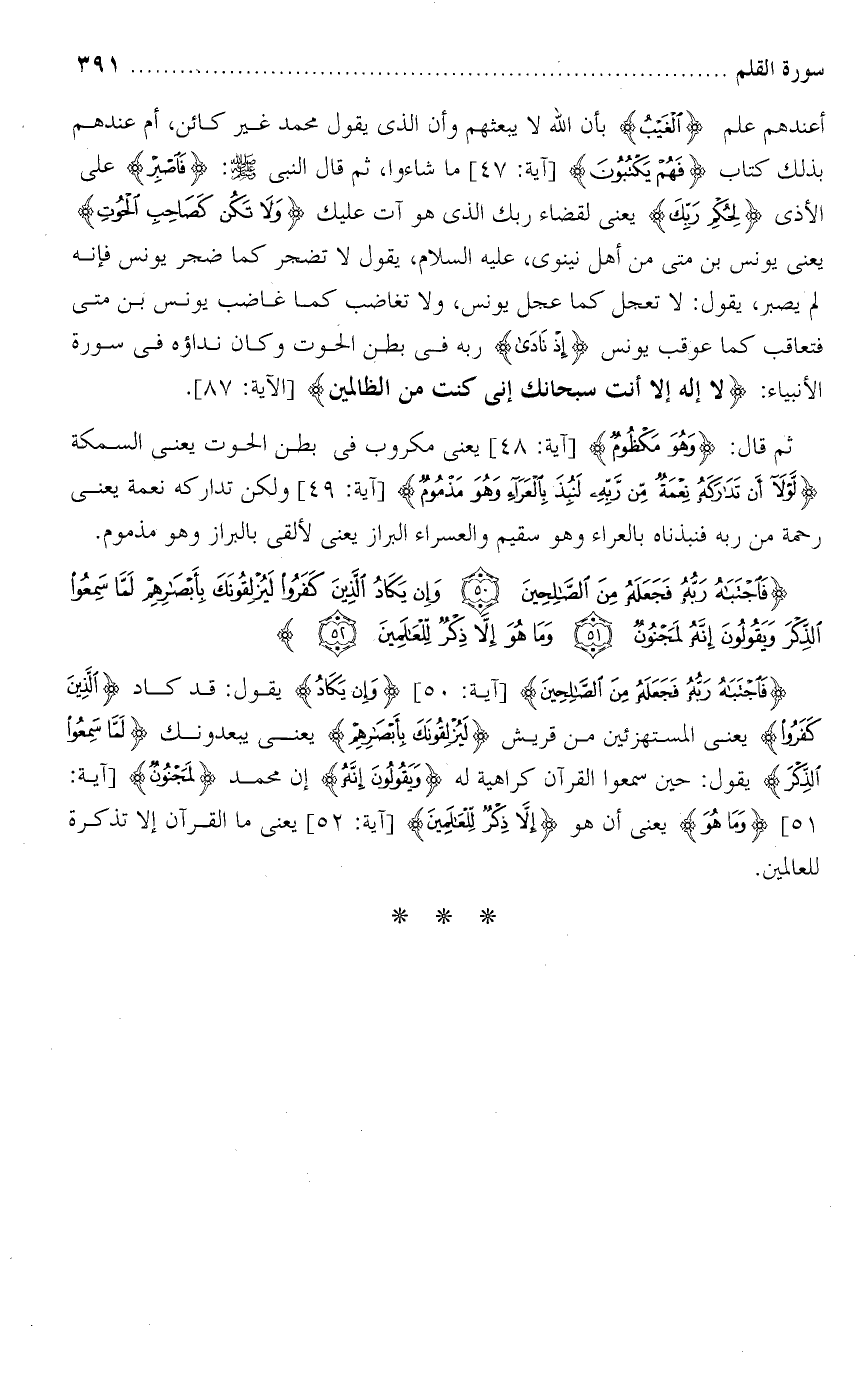 سورة القلم ........................................................................ ٣٩١
أعندهم علم ﴿ٱلْغَيْبُ﴾ بأن الله لا يبعثهم وأن الذى يقول محمد غير كائن، أم عندهم
بذلك كتاب ﴿فَهُمْ يَكْتُبُونَ﴾ [آية: ٤٧] ما شاءوا، ثم قال النبى ﷺ: ﴿فَٱصْبِرْ﴾ على
الأذى ﴿لِحُكْمِ رَبِّكَ﴾ يعنى لقضاء ربك الذى هو آت عليك ﴿وَلَا تَكُن كَصَاحِبِ ٱلْحُوتِ﴾
يعنى يونس بن متى من أهل نينوى، عليه السلام، يقول لا تضجر كما ضجر يونس فإنه
لم يصبر، يقول: لا تعجل كما عجل يونس، ولا تغاضب كما غاضب يونس بن متى
فتعاقب كما عوقب يونس ﴿إِذْ نَادَىٰ﴾ ربه فى بطن الحوت وكان نداؤه فى سورة
الأنبياء: ﴿لا إله إلا أنت سبحانك إنى كنت من الظالمين﴾ [الآية: ٨٧].
ثم قال: ﴿وَهُوَ مَكْظُومٌ﴾ [آية: ٤٨] يعنى مكروب فى بطن الحوت يعنى السمكة
﴿لَّوْلَآ أَن تَدَٰرَكَهُۥ نِعْمَةٌ مِّن رَّبِّهِۦ لَنُبِذَ بِٱلْعَرَآءِ وَهُوَ مَذْمُومٌ﴾ [آية: ٤٩] ولكن تداركه نعمة يعنى
رحمة من ربه فنبذناه بالعراء وهو سقيم والعسراء البراز يعنى لألقى بالبراز وهو مذموم.
﴿فَٱجْتَبَـٰهُ رَبُّهُۥ فَجَعَلَهُۥ مِنَ ٱلصَّـٰلِحِينَ ٥٠ وَإِن يَكَادُ ٱلَّذِينَ كَفَرُوا۟ لَيُزْلِقُونَكَ بِأَبْصَـٰرِهِمْ لَمَّا سَمِعُوا۟
ٱلذِّكْرَ وَيَقُولُونَ إِنَّهُۥ لَمَجْنُونٌ ٥١ وَمَا هُوَ إِلَّا ذِكْرٌ لِّلْعَـٰلَمِينَ ٥٢ ﴾
﴿فَٱجْتَبَـٰهُ رَبُّهُۥ فَجَعَلَهُۥ مِنَ ٱلصَّـٰلِحِينَ﴾ [آية: ٥٠] ﴿وَإِن يَكَادُ﴾ يقول: قد كاد ﴿ٱلَّذِينَ
كَفَرُوا۟﴾ يعنى المستهزئين من قريش ﴿لَيُزْلِقُونَكَ بِأَبْصَـٰرِهِمْ﴾ يعنى يبعدونك ﴿لَمَّا سَمِعُوا۟
ٱلذِّكْرَ﴾ يقول: حين سمعوا القرآن كراهية له ﴿وَيَقُولُونَ إِنَّهُۥ﴾ إن محمد ﴿لَمَجْنُونٌ﴾ [آية:
٥١] ﴿وَمَا هُوَ﴾ يعنى أن هو ﴿إِلَّا ذِكْرٌ لِّلْعَـٰلَمِينَ﴾ [آية: ٥٢] يعنى ما القرآن إلا تذكرة
للعالمين.
* * *